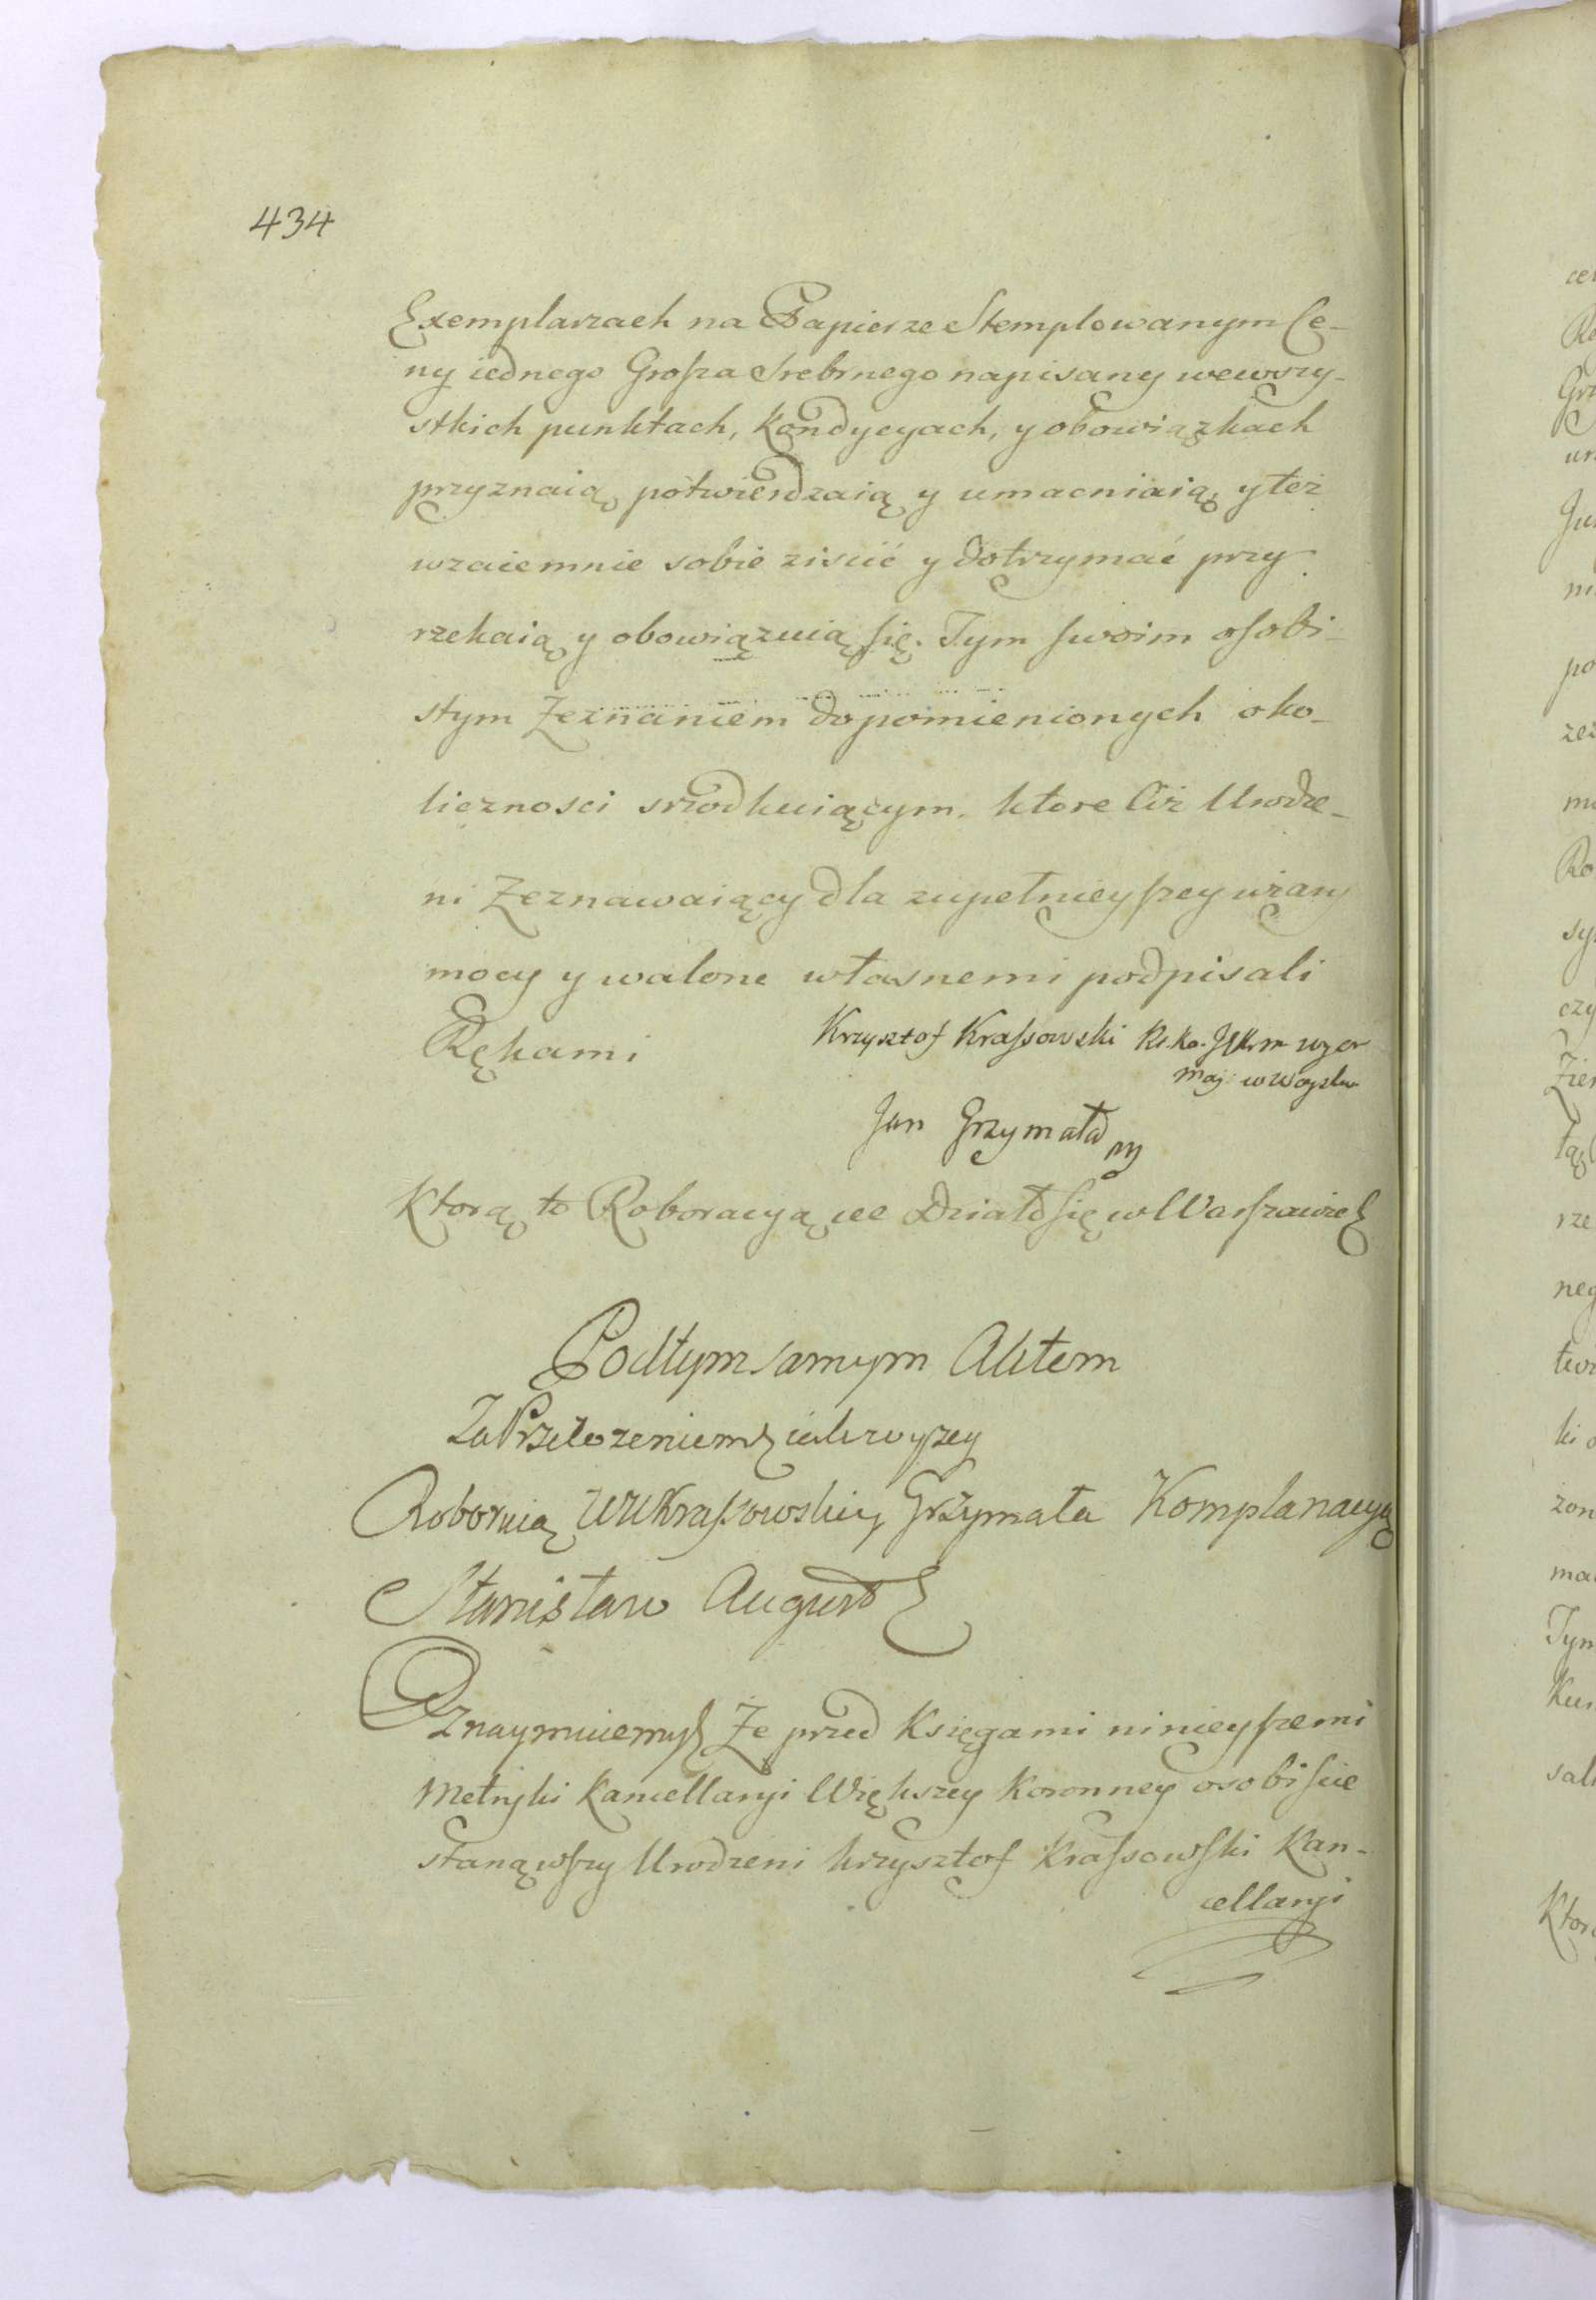 434
Exemplarzach na Papierze Stemplowanym Ce-
ny iednego Grosza Srebrnego napisany wewszy-
stkich punktach, Kondycyach, y obowiązkach
przyznaią, potwierdzaią y umacniaią, y też
wzaiemnie sobie ziscić y dotrzymać przy
rzekaią y obowiązuią się. Tym swoim osobi-
stym Zeznaniem do pomienionych oko-
licznosci srzodkuiącym. ktore Ciż Urodze-
ni Zeznawaiący dla zupełnieyszey wiary
mocy y walone własnemi podpisali
Rękami
Krzysztof Krassowski
Jan Grzymała
Ktorą to Roboracyą etc Działo się w Warszawie
Podtym samym Aktem
Za Przełozeniem iak wyzey
Roboruią Krassowski y Grzymała Komplanacyą
Stanisław August
Oznaymuiemy Że przed Księgami ninieyszemi
Metryki Kancellaryi Większey Koronney osobiscie
stanąwszy Urodzeni Krzysztof Krassowski Kan-
cellaryi